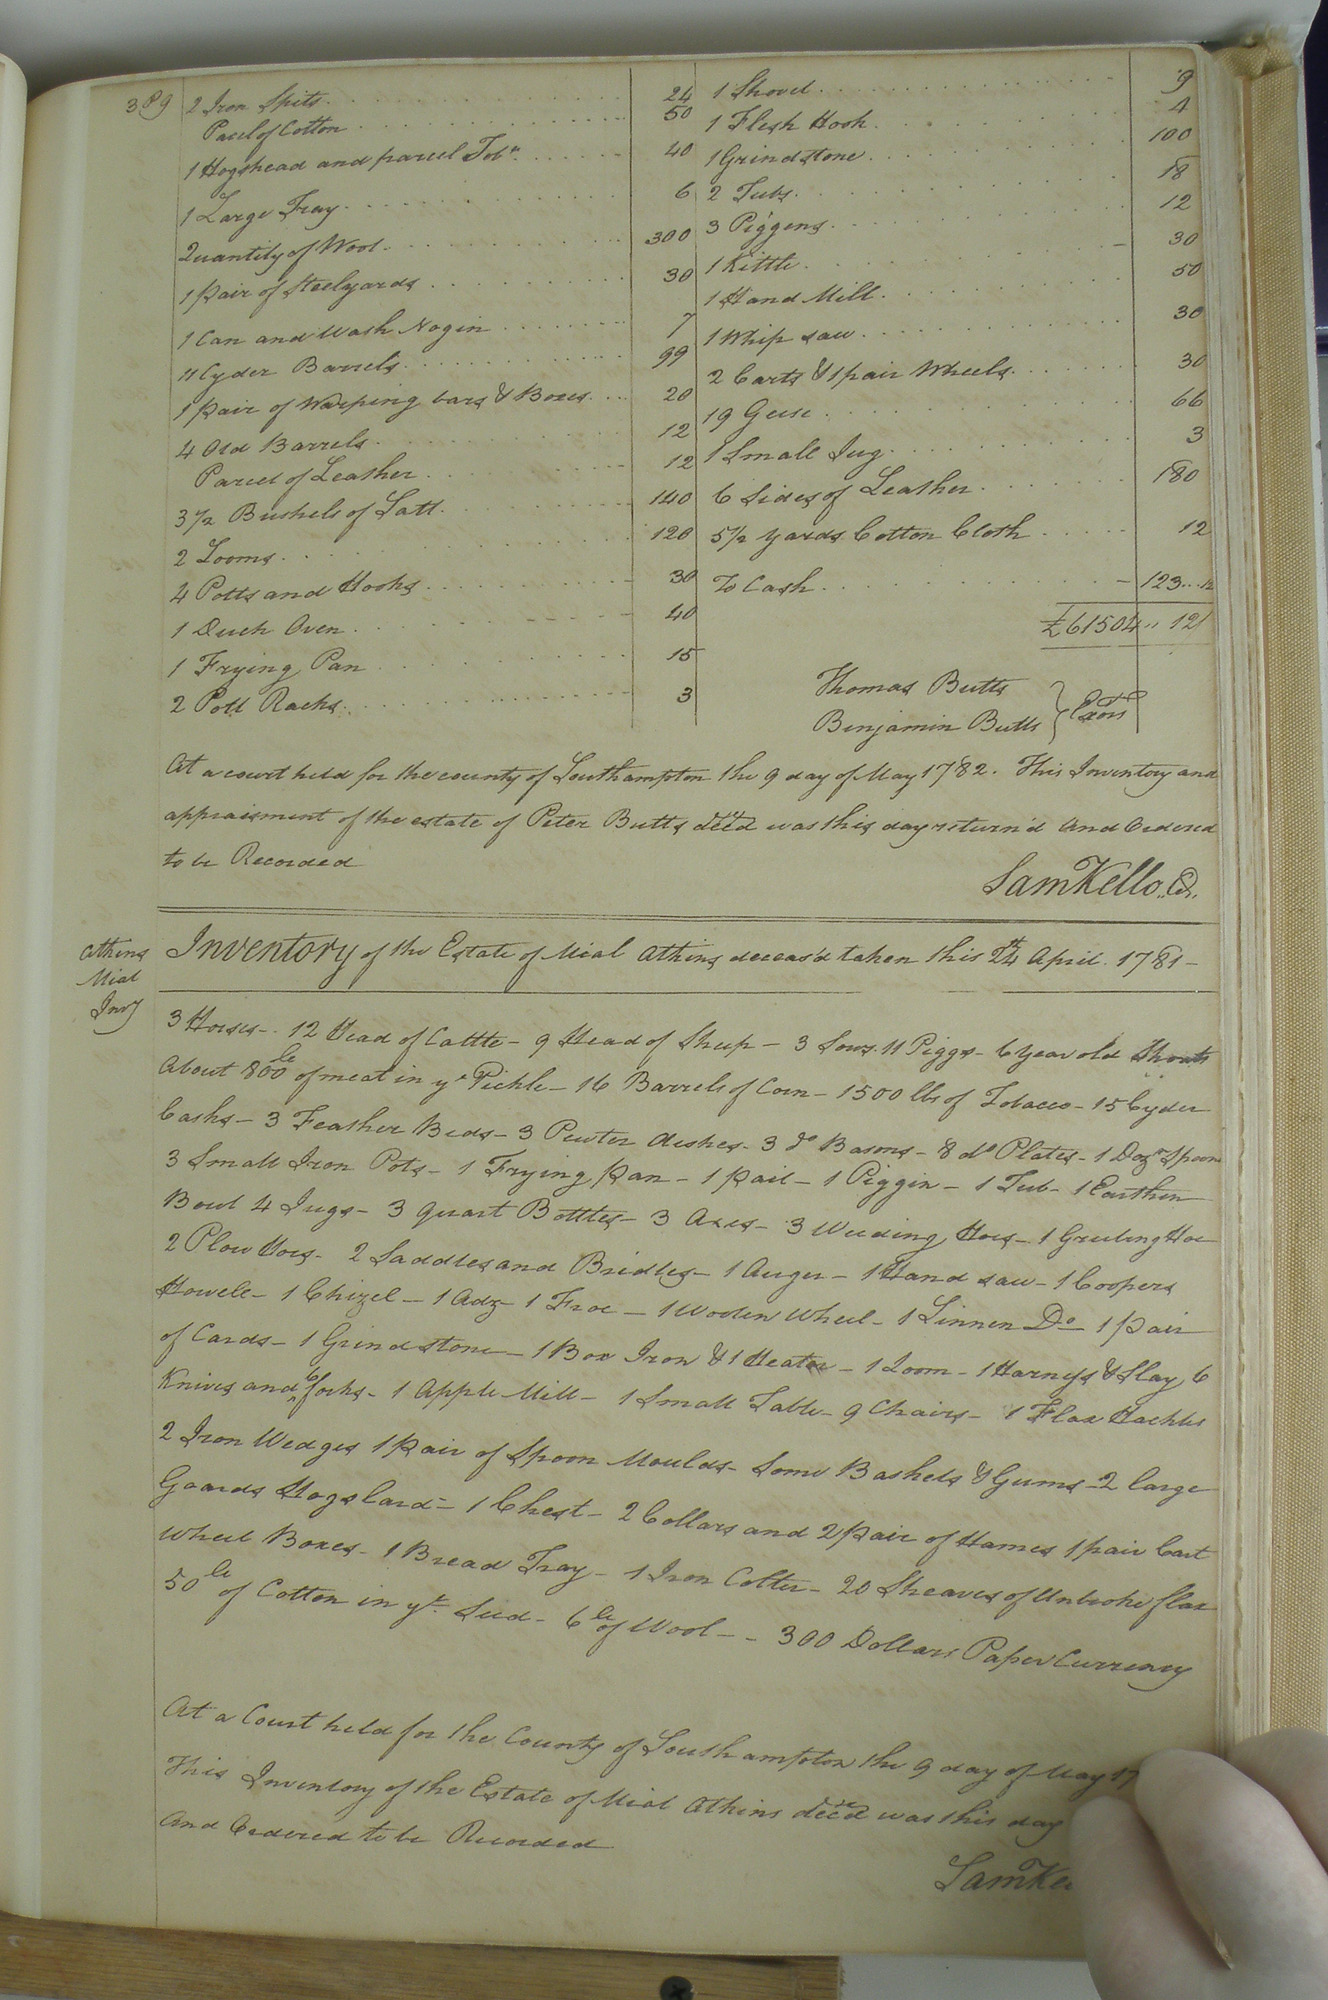 389
2 Iron Spits 24
Pacel of Cotton 50
1 Hogshead and parcel Tobo. 40
1 Large Tray 6
Quantity of Wool 300
1 pair of Steelyards 30
1 Can and Wash Nogin 7
11 Cyder Barrels 99
1 pair of Warping bars & Boxes 20
4 Old Barrels 12
Parcel of Leather 12
3 1/2 Bushels of Salt 140
2 Looms 120
4 Potts and Hooks 30
1 Duch Oven 40
1 Frying Pan 15
2 Pott Racks 3
1 Shovel 9
1 Flesh Hook 4
1 Grindstone 100
2 Tubs 18
3 Piggens 12
1 Kittle 30
1 Hand Mill 50
1 Whip saw 30
2 Carts & 1 pair Wheels 30
19 Geese 66
1 Small Jug 3
6 Sides of Leather 180
5 1/2 yards Cotton Cloth 12
To Cash 123..12
£61504,, 12
Thomas Butts
Benjamin Butts } Exors
At a court held for the county of Southampton the 9 day of May 1782. This Inventory and
appraisment of the estate of Peter Butts dec'd was this day return'd And Ordered
to be Recorded
Sam Kello. Cr.
Athins
Mial
Invy
Inventory of the Estate of Mial Athins deceas'd taken this 24th April. 1781 -
3 Horses - 12 Head of Cattle - 9 Head of Sheep - 3 Sows. 11 Piggs - 6 year old Shoats
About 800 le of meat in ye Pickle - 16 Barrels of Corn - 1500 lbs of Tobacco - 15 Cyder
Casks - 3 Feather Beds - 3 Pewter dishes - 3 do Basons - 8 do Plates - 1 Dozn Spoons
3 Small Iron Pots - 1 Frying pan - 1 pail - 1 Piggin - 1 Tub - 1 Earthen
Bowl 4 Jugs - 3 quart Bottles - 3 Axes - 3 Weeding Hoes - 1 Gruling Hoe
2 Plow Hoes - 2 Saddles and Bridles - 1 Auger - 1 Hand saw - 1 Coopers
Howele - 1 Chizel - 1 Adz - 1 Froe - 1 Wooden Wheel - 1 Linnen Do - 1 pair
of Cards - 1 Grindstone - 1 Box Iron & 1 Heater - 1 Loom - 1 Harness & Slay 6
Knives and 6 forks - 1 Apple Mill - 1 Small Table - 9 Chairs - 1 Flax Hackles
2 Iron Wedges 1 pair of Spoon Moulds - Some Baskets & Gums - 2 large
Goards Hogs lard - 1 Chest - 2 Collars and 2 pair of Hames 1 pair Cart
Wheel Boxes - 1 Bread Tray - 1 Iron Colter - 20 Sheaves of Unbroke flax
50 le of Cotton in ye Seed - 6 le of Wool - - 300 Dollars Paper Currency
At a Court held for the County of Southampton the 9 day of May 17
This Inventory of the Estate of Mial Athins dec'd was this day
And Ordered to be Recorded
Sam Ke